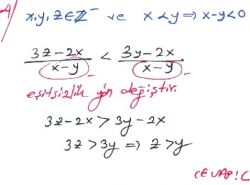 4) x, y, z ∈ ℤ⁻ ve x < y ⇒ x-y < 0
3z-2x / (x-y) < 3y-2x / (x-y)
eşitsizlik yön değiştir.
3z-2x > 3y-2x
3z > 3y ⇒ z > y
CEVAP: C